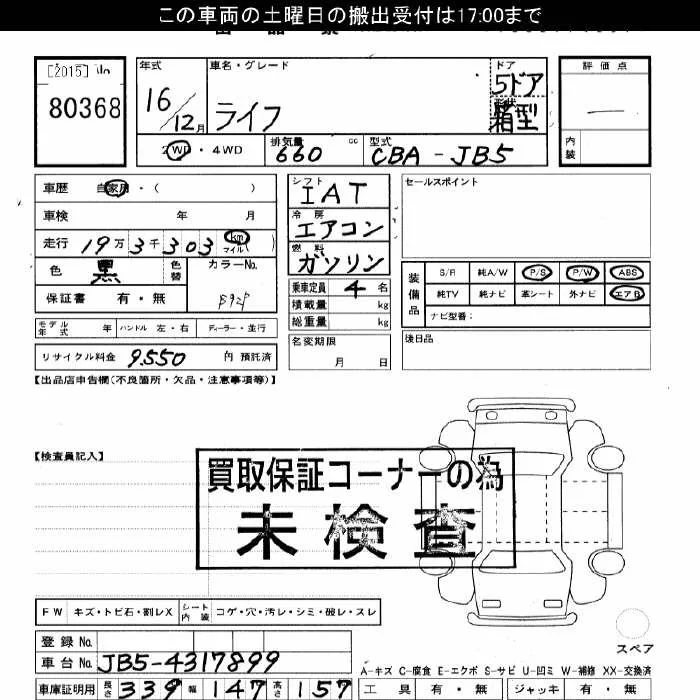 この車両の土曜日の搬出受付は17:00まで
[2015] No
80368
年式
16/12月
車名・グレード
ライフ
ドア
5ドア
形状
箱型
評価点
—
内装
2WD・4WD
排気量
660 cc
型式
CBA-JB5
車歴 自家用・( )
車検 年 月
走行 19万3千303 km マイル( )
色 黒 色替
カラーNo.
保証書 有・無
シフト
IAT
冷房
エアコン
燃料
ガソリン
乗車定員 4 名
積載量 kg
総重量 kg
セールスポイント
装備品
S/R 純A/W P/S P/W ABS
純TV 純ナビ 革シート 外ナビ エアB
ナビ型番:
モデル年式 年 ハンドル 左・右 ディーラー・並行
リサイクル料金 9,550 円 預託済
名変期限
月 日
後日品
【出品店申告欄(不良箇所・欠品・注意事項等)】
【検査員記入】
買取保証コーナーの為
未検査
FW キズ・トビ石・割レX シート内装 コゲ・穴・汚レ・シミ・破レ・スレ
登録No.
車台No. JB5-4317899
車庫証明用 長さ 339 幅 147 高さ 157
スペア
A-キズ C-腐食 E-エクボ S-サビ U-凹ミ W-補修 XX-交換済
工具 有・無 ジャッキ 有・無